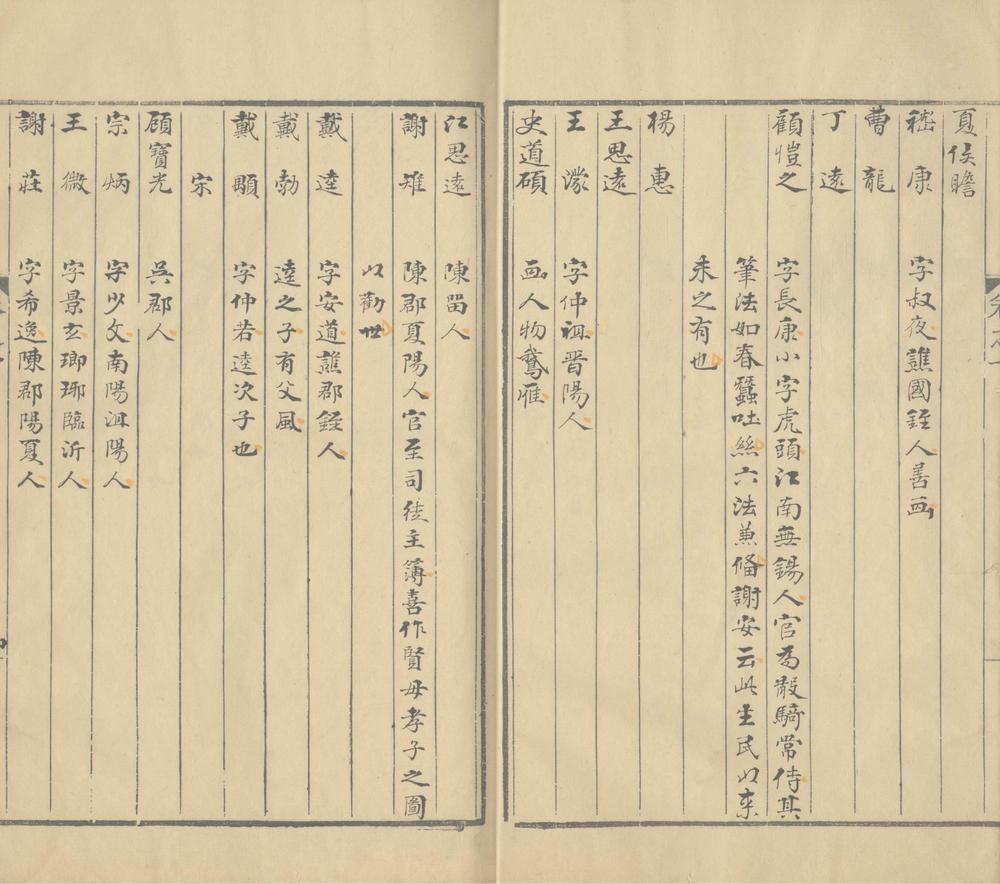 夏侯瞻
嵇康 字叔夜譙國銍人善画
曹龍
丁遠
顧愷之 字長康小字虎頭江南無錫人官為散騎常侍其
筆法如春蠶吐絲六法兼備謝安云此生民以來
未之有也
楊惠
王思遠
王濛 字仲祖晉陽人
史道碩 画人物鵝雁
江思遠 陳留人
謝雉 陳郡夏陽人官至司徒主簿喜作賢母孝子之圖
以勸世
戴逵 字安道譙郡銍人
戴勃 逵之子有父風
戴顒 字仲若逵次子也
宋
顧寶光 吳郡人
宗炳 字少文南陽沮陽人
王微 字景玄瑯琊臨沂人
謝莊 字希逸陳郡陽夏人